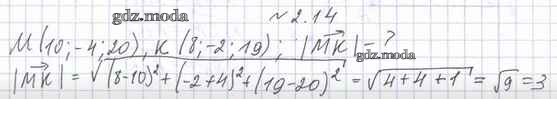 gdz.moda
№ 2.14
M(10;-4;20), K(8;-2;19); |MK⃗| = ?
gdz.moda
|MK⃗| = √((8-10)²+(-2+4)²+(19-20)²) = √(4+4+1) = √9 = 3